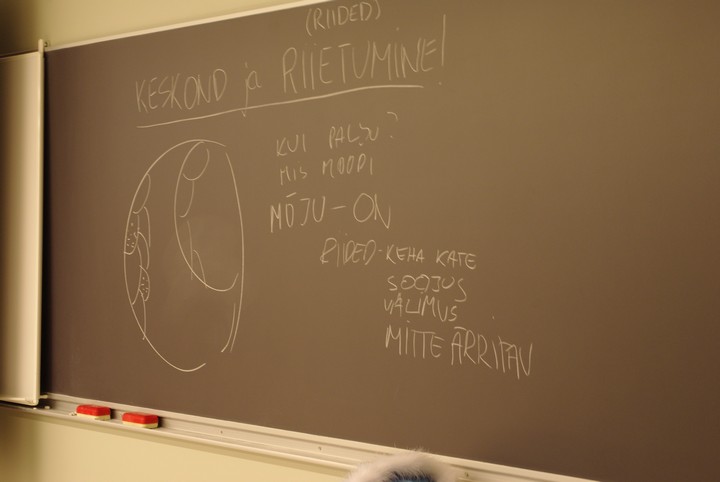 (RIIDED)
KESKOND ja RIIETUMINE!
KUI PALJU?
MIS MOODI
MÕJU-ON
RIIDED-KEHA KATE
SOOJUS
VÄLIMUS
MITTE ÄRRITAV